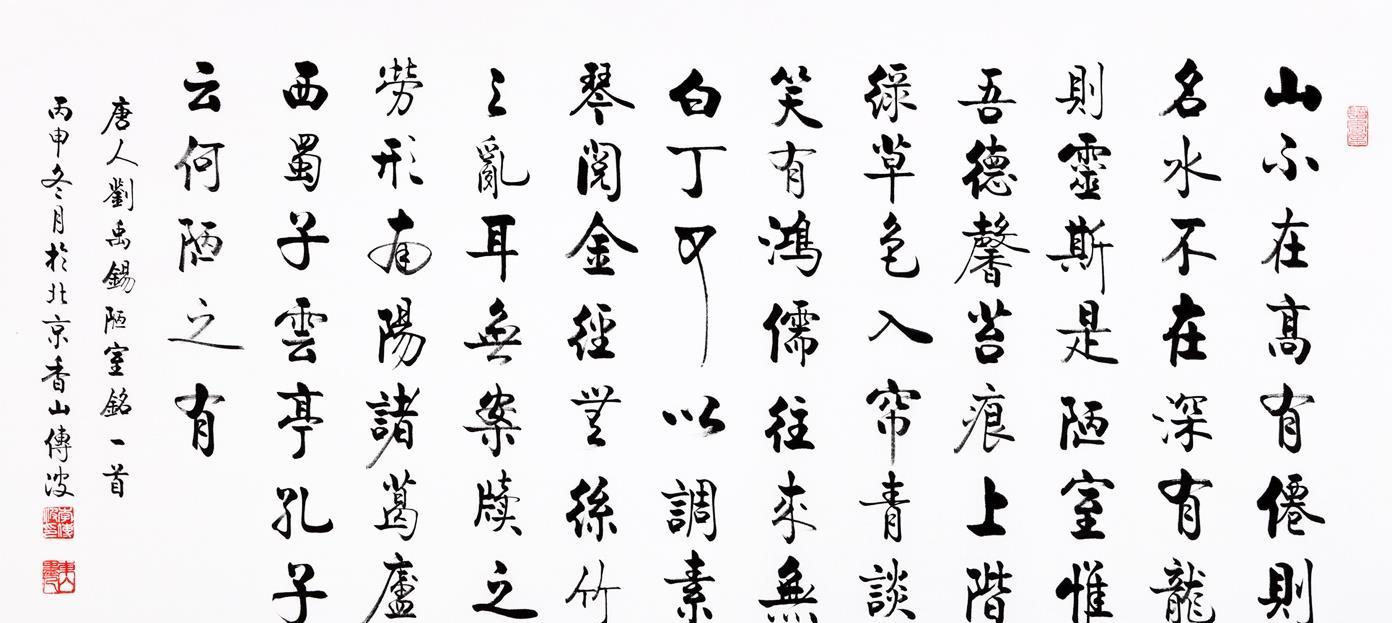 山不在高有僊則
名水不在深有龍
則靈斯是陋室惟
吾德馨苔痕上階
綠草色入帘青談
笑有鴻儒往來無
白丁可以調素
琴閱金徑無絲竹
之亂耳無案牘之
勞形南陽諸葛廬
西蜀子雲亭孔子
云何陋之有
唐人劉禹錫陋室銘一首
丙申冬月於北京香山傳波